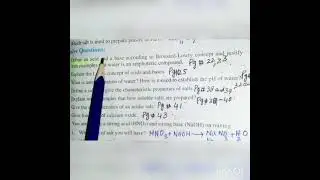 is used to prepare
Questions:
an acid and a base according to Bronsted-Lowry concept and justify
water is an amphoteric compound. Pg # 22,33
Explain the concept of acids and bases Pg #25
of water? How is it used to establish the pH of water? Pg
Define a salt give the characteristic properties of salts. Pg # 38 and 39
Explain with examples that how soluble salts are prepared? Pg #39-40
Give the characteristics of an acidic salt. Pg # 41
Give uses of calcium oxide. Pg # 43
a strong acid (HNO3) and strong base (NaOH) on mixing
of salt you will have? HNO3 + NaOH → NaNO3 + H2O